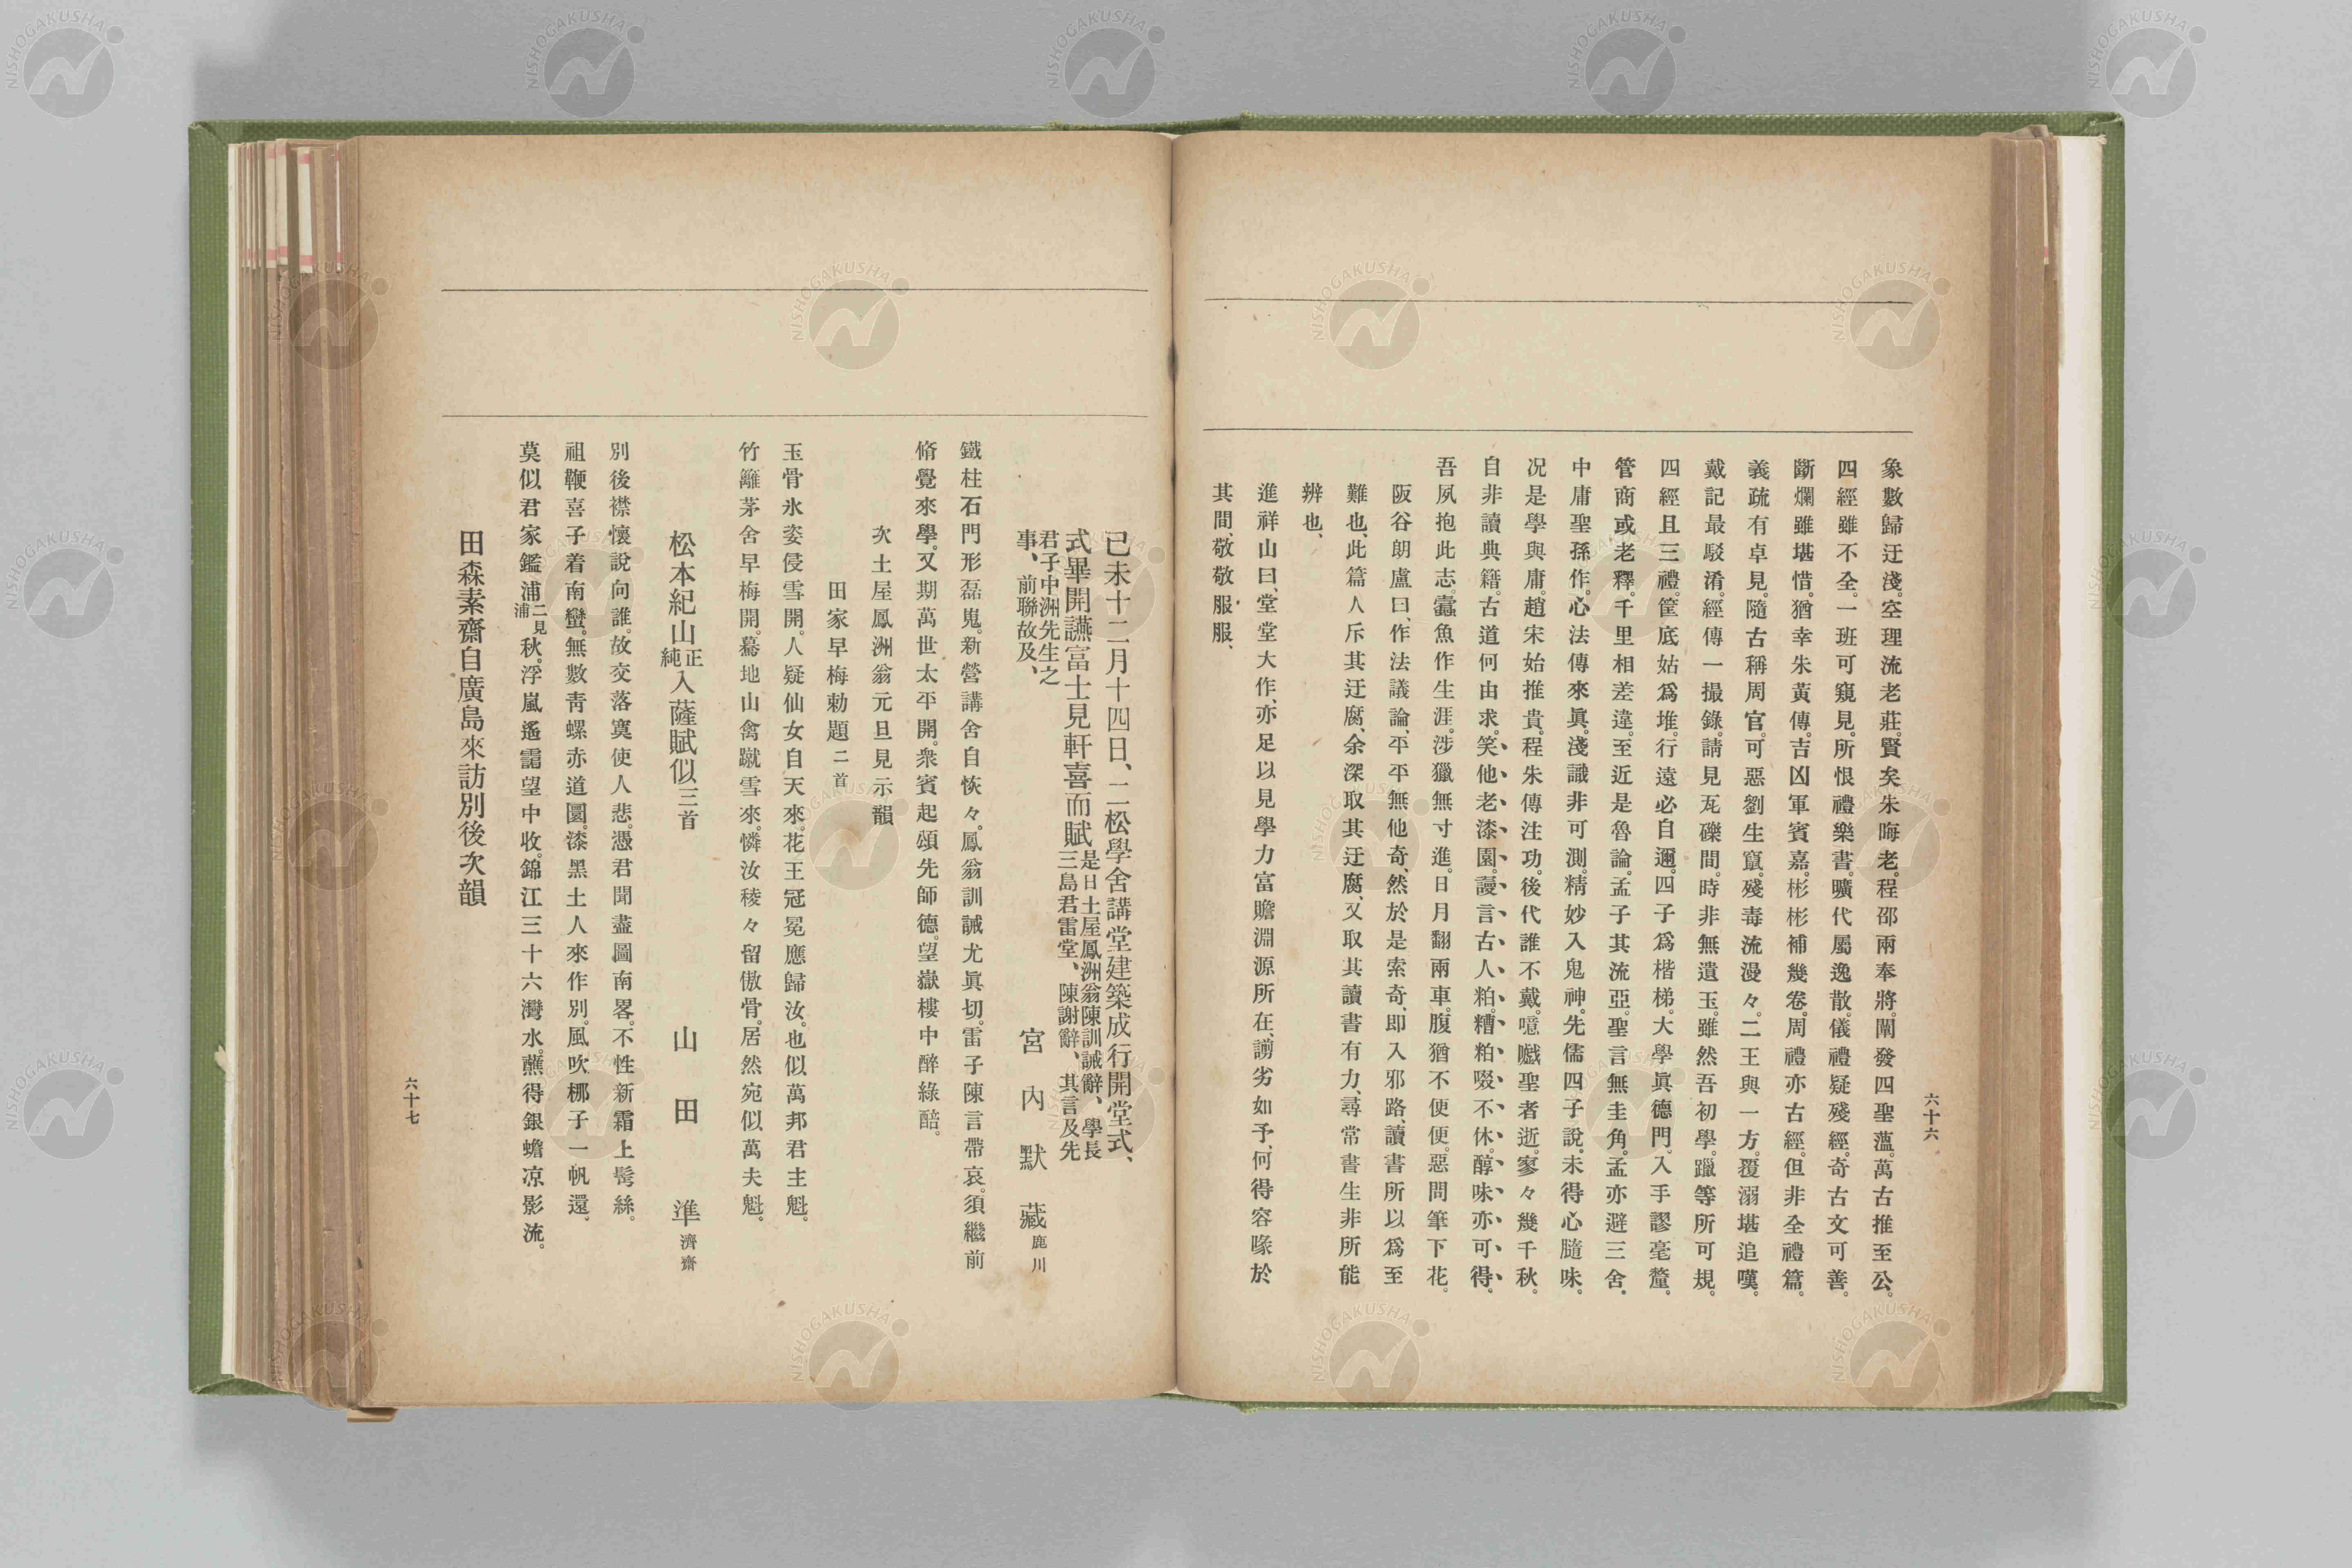 象數歸迂淺。空理流老莊。賢矣朱晦老。程邵兩奉將。闡發四聖薀。萬古推至公。
四經雖不全。一班可窺見。所恨禮樂書。曠代屬逸散。儀禮疑殘經。奇古文可善。
斷爛雖堪惜。猶幸朱黃傳。吉凶軍賓嘉。彬彬補幾卷。周禮亦古經。但非全禮篇。
義疏有卓見。隨古稱周官。可惡劉生竄。殘毒流漫々。二王與一方。覆溺堪追嘆。
戴記最駁淆。經傳一撮錄。請見瓦礫間。時非無遺玉。雖然吾初學。躐等所可規。
四經且三禮。筐底姑爲堆。行遠必自邇。四子爲楷梯。大學眞德門。入手謬毫釐。
管商或老釋。千里相差違。至近是魯論。孟子其流亞。聖言無圭角。孟亦避三舍。
中庸聖孫作。心法傳來眞。淺識非可測。精妙入鬼神。先儒四子說。未得心髓味。
况是學與庸。趙宋始推貴。程朱傳注功。後代誰不戴。噫嚱聖者逝。寥々幾千秋。
自非讀典籍。古道何由求。笑他老漆園。謾言古人粕。糟粕啜不休。醇味亦可得。
吾夙抱此志。蠹魚作生涯。涉獵無寸進。日月翻兩車。腹猶不便便。惡問筆下花。
阪谷朗盧曰、作法議論、平平無他奇、然於是索奇、即入邪路、讀書所以爲至
難也、此篇人斥其迂腐、余深取其迂腐、又取其讀書有力、尋常書生非所能
辨也、
進祥山曰、堂堂大作、亦足以見學力富贍淵源所在、謭劣如予、何得容喙於
其間、敬敬服服、
六十六
已未十二月十四日、二松學舍講堂建築成行開堂式、
式畢開讌富士見軒喜而賦是日土屋鳳洲翁陳訓誡辭、學長三島君雷堂、陳謝辭、其言及先
君子中洲先生之事、前聯故及、
宮內默藏鹿川
鐵柱石門形磊嵬。新營講舍自恢々。鳳翁訓誡尤眞切。雷子陳言帶哀。須繼前
脩覺來學。又期萬世太平開。衆賓起頌先師德。望嶽樓中醉綠醅。
次土屋鳳洲翁元旦見示韻
田家早梅勅題二首
玉骨氷姿侵雪開。人疑仙女自天來。花王冠冕應歸汝。也似萬邦君主魁。
竹籬茅舍早梅開。驀地山禽蹴雪來。憐汝稜々留傲骨。居然宛似萬夫魁。
松本紀山正純入薩賦似三首
山田準濟齋
別後襟懷說向誰。故交落寞使人悲。憑君聞盡圖南畧。不性新霜上鬢絲。
祖鞭喜子着南蠻。無數靑螺赤道圜。漆黑土人來作別。風吹梛子一帆還。
莫似君家鑑浦二見浦秋。浮嵐遙靄望中收。錦江三十六灣水。蘸得銀蟾凉影流。
田森素齋自廣島來訪別後次韻
六十七